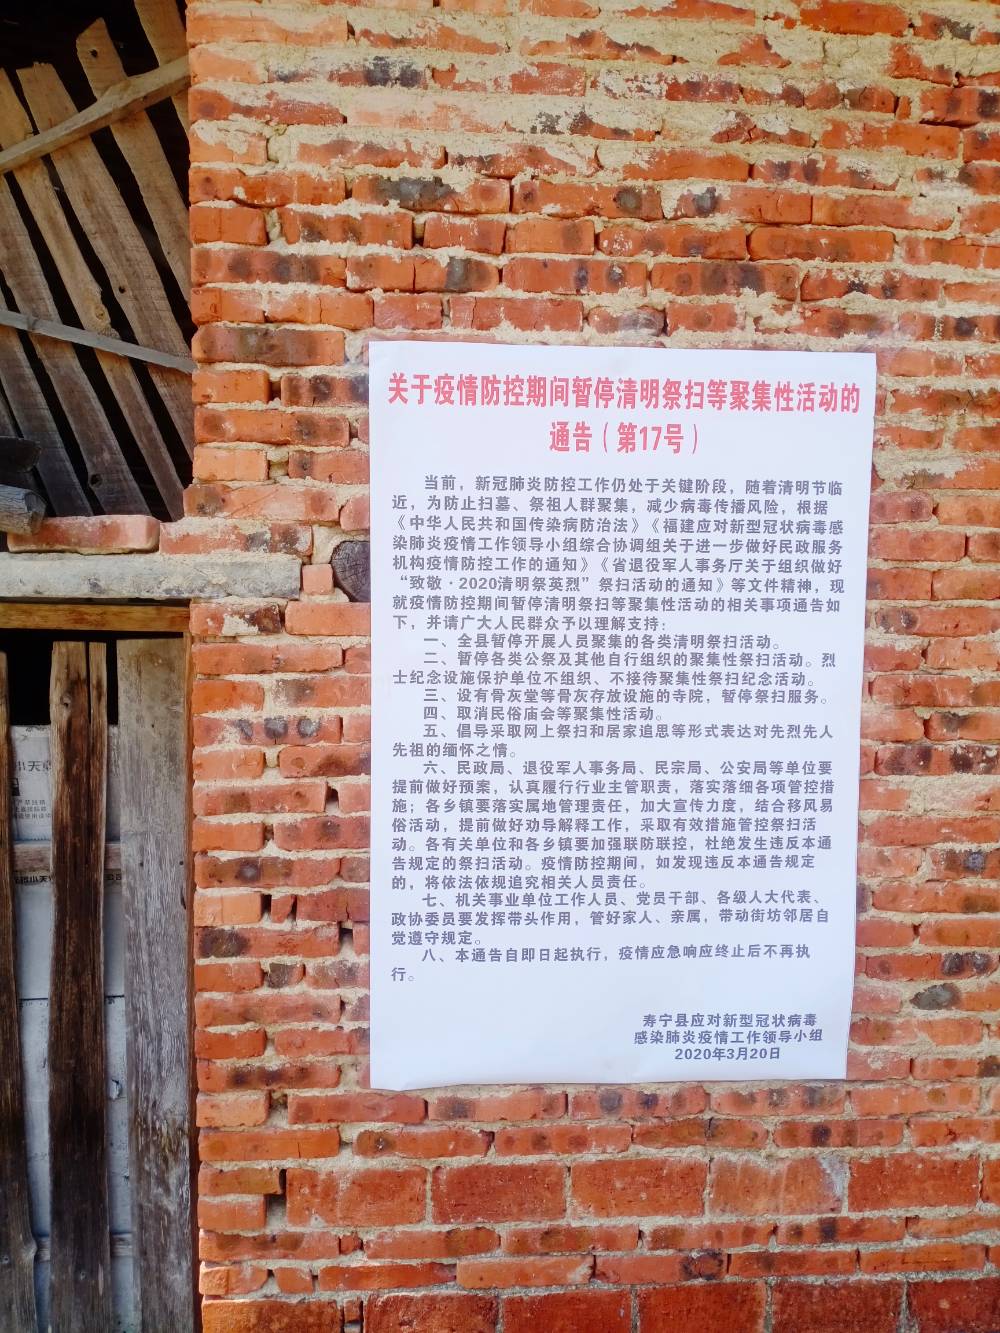 关于疫情防控期间暂停清明祭扫等聚集性活动的
通告（第17号）
当前，新冠肺炎防控工作仍处于关键阶段，随着清明节临
近，为防止扫墓、祭祖人群聚集，减少病毒传播风险，根据
《中华人民共和国传染病防治法》《福建应对新型冠状病毒感
染肺炎疫情工作领导小组综合协调组关于进一步做好民政服务
机构疫情防控工作的通知》《省退役军人事务厅关于组织做好
“致敬·2020清明祭英烈”祭扫活动的通知》等文件精神，现
就疫情防控期间暂停清明祭扫等聚集性活动的相关事项通告如
下，并请广大人民群众予以理解支持：
一、全县暂停开展人员聚集的各类清明祭扫活动。
二、暂停各类公祭及其他自行组织的聚集性祭扫活动。烈
士纪念设施保护单位不组织、不接待聚集性祭扫纪念活动。
三、设有骨灰堂等骨灰存放设施的寺院，暂停祭扫服务。
四、取消民俗庙会等聚集性活动。
五、倡导采取网上祭扫和居家追思等形式表达对先烈先人
先祖的缅怀之情。
六、民政局、退役军人事务局、民宗局、公安局等单位要
提前做好预案，认真履行行业主管职责，落实落细各项管控措
施；各乡镇要落实属地管理责任，加大宣传力度，结合移风易
俗活动，提前做好劝导解释工作，采取有效措施管控祭扫活
动。各有关单位和各乡镇要加强联防联控，杜绝发生违反本通
告规定的祭扫活动。疫情防控期间，如发现违反本通告规定
的，将依法依规追究相关人员责任。
七、机关事业单位工作人员、党员干部、各级人大代表、
政协委员要发挥带头作用，管好家人、亲属，带动街坊邻居自
觉遵守规定。
八、本通告自即日起执行，疫情应急响应终止后不再执
行。
寿宁县应对新型冠状病毒
感染肺炎疫情工作领导小组
2020年3月20日
小天